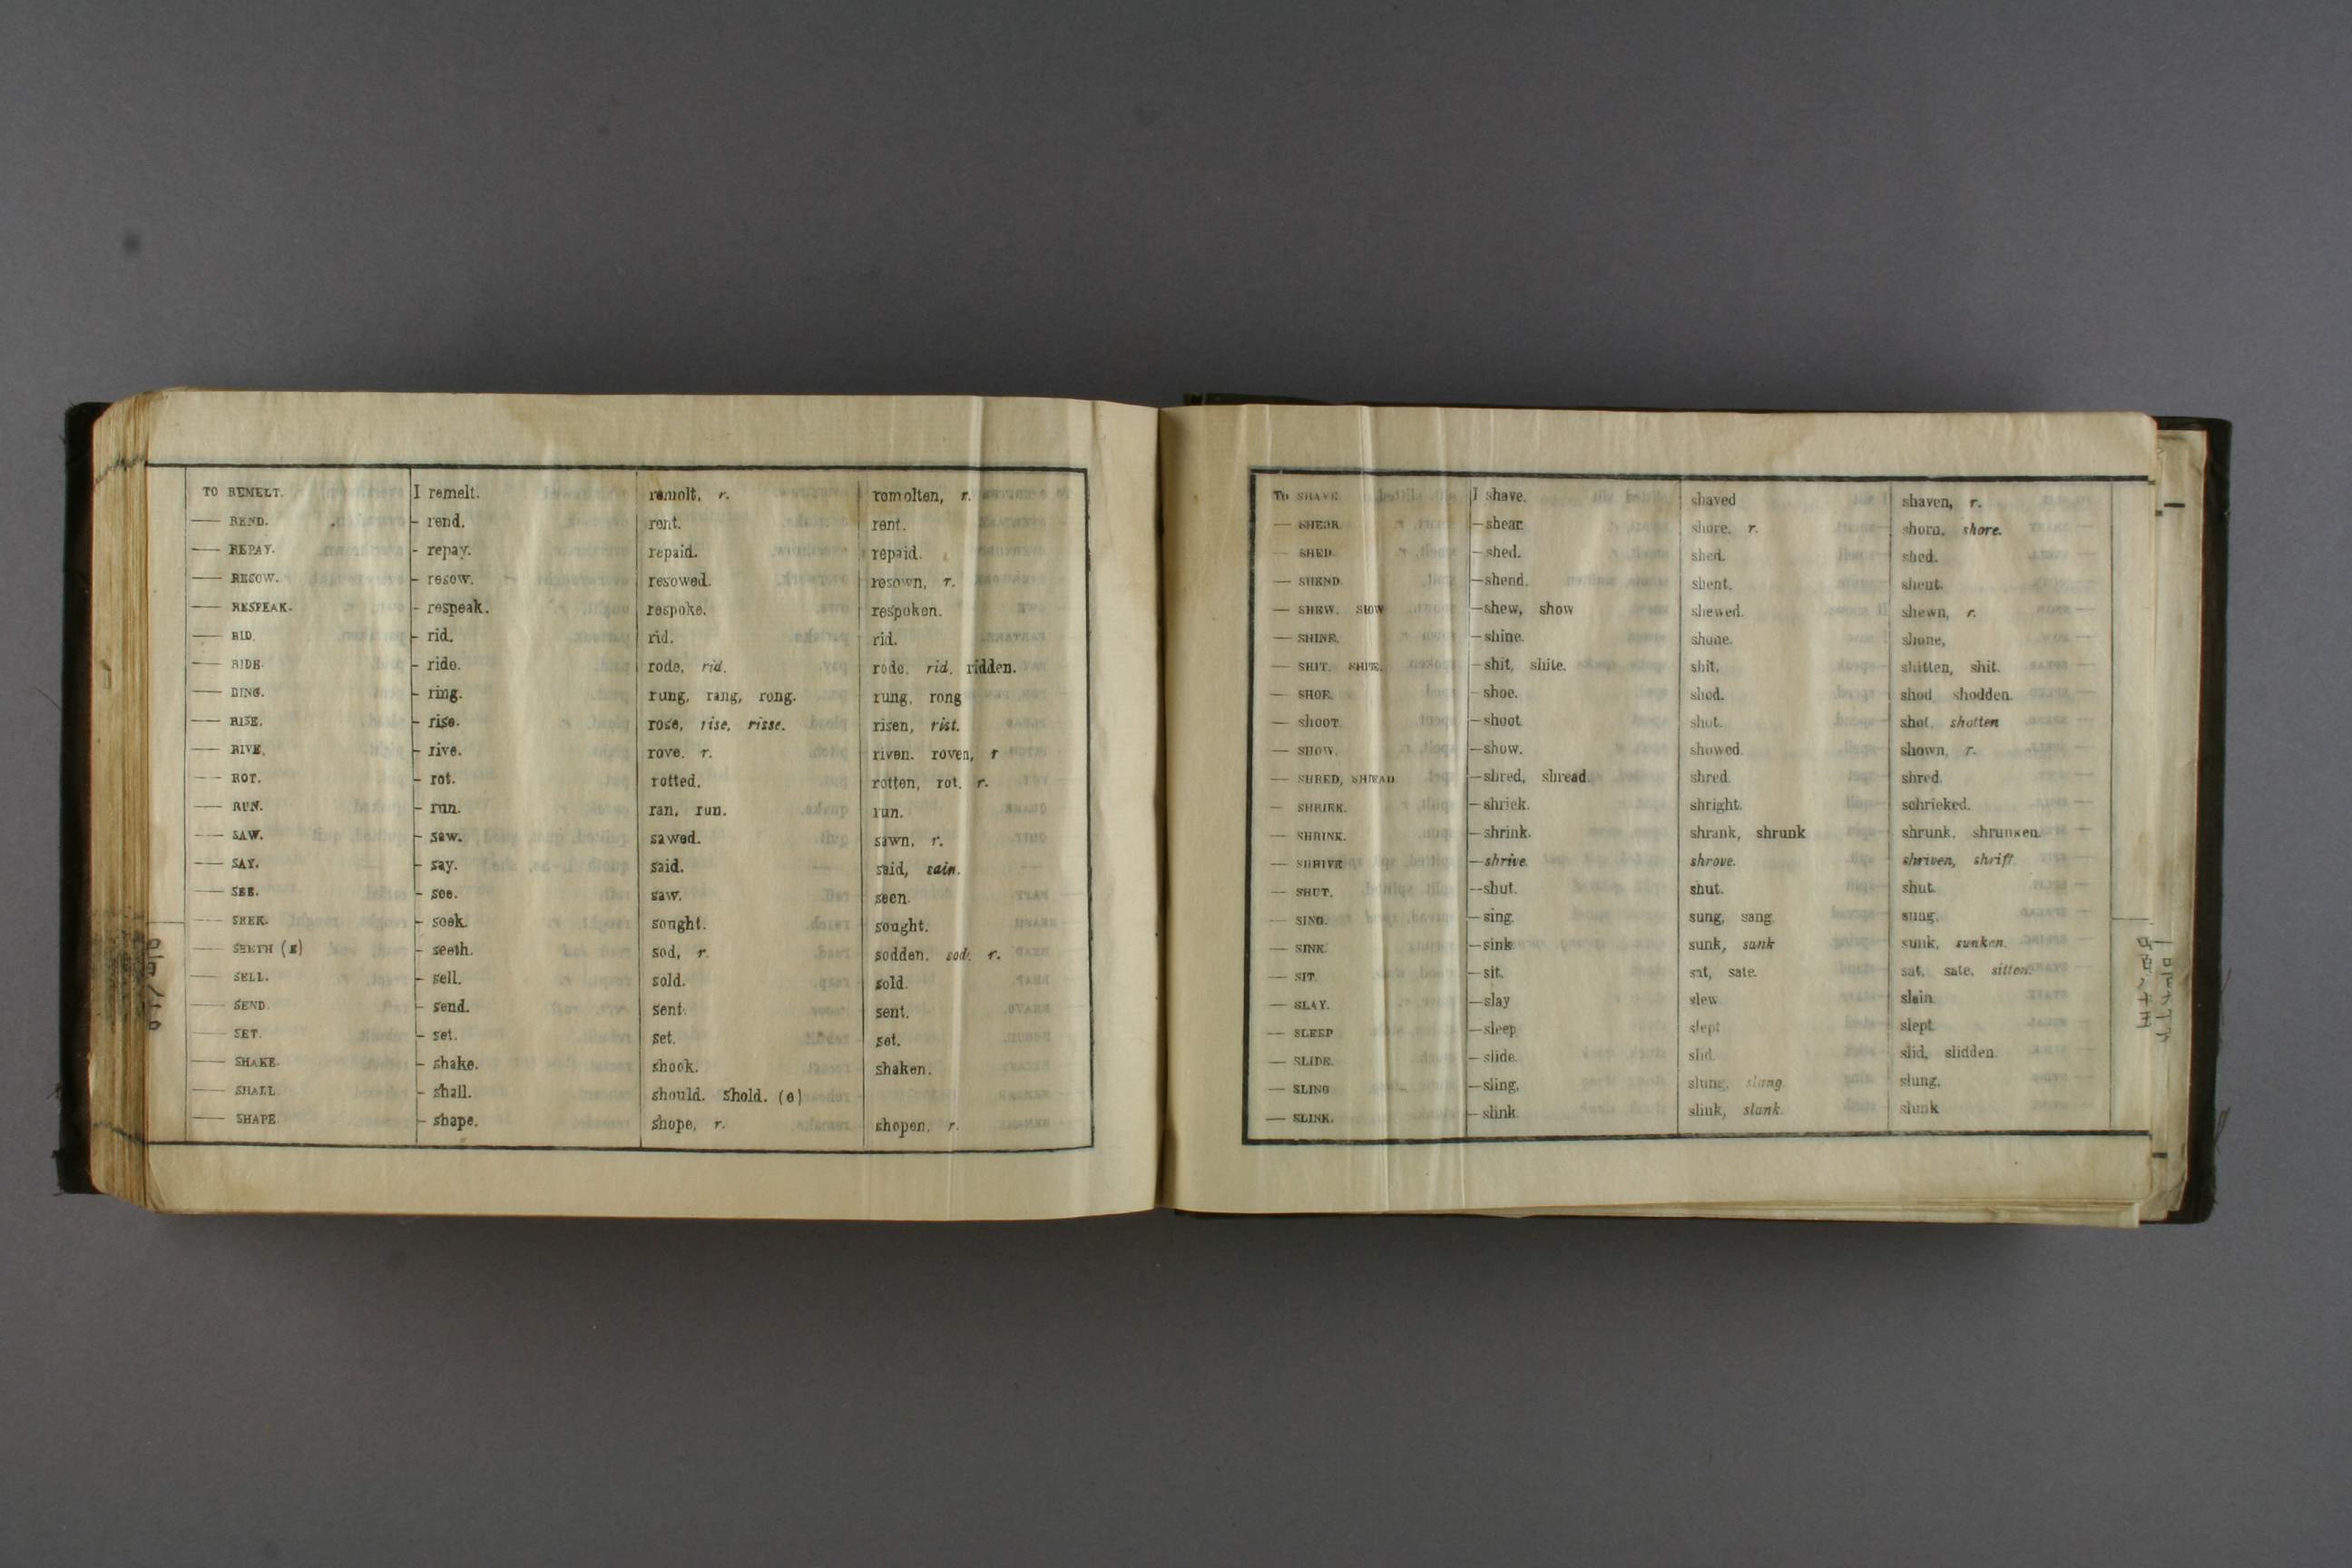 TO REMELT. I remelt. remolt, r. romolten, r.
— REND. - rend. rent. rent.
— REPAY. - repay. repaid. repaid.
— RESOW. - resow. resowed. resown, r.
— RESPEAK. - respeak. respoke. respoken.
— RID. - rid. rid. rid.
— RIDE. - ride. rode, rid. rode, rid, ridden.
— RING. - ring. rung, rang, rong. rung, rong
— RISE. - rise. rose, rise, risse. risen, rist.
— RIVE. - rive. rove. r. riven. roven, r
— ROT. - rot. rotted. rotten, rot, r.
— RUN. - run. ran, run. run.
— SAW. - saw. sawed. sawn, r.
— SAY. - say. said. said, sain.
— SEE. - see. saw. seen.
— SEEK. - seek. sought. sought.
— SEETH (E) - seeth. sod, r. sodden, sod, r.
— SELL. - sell. sold. sold.
— SEND. - send. sent. sent.
— SET. - set. set. set.
— SHAKE. - shake. shook. shaken.
— SHALL - shall. should. Shold. (e)
— SHAPE. - shape. shope, r. shopen, r.
TO SHAVE. I shave. shaved shaven, r.
— SHEAR. —shear. shore. r. shorn, shore.
— SHED. —shed. shed. shed.
— SHEND. —shend. shent. shent.
— SHEW. SHOW —shew, show shewed. shewn, r.
— SHINE. —shine. shone. shone,
— SHIT. SHITE. —shit, shite. shit. shitten, shit.
— SHOE. —shoe. shod. shod shodden.
— SHOOT. —shoot shot. shot, shotten
— SHOW. —show. showed. shown, r.
— SHRED, SHREAD. —shred, shread. shred. shred.
— SHRIEK. —shriek. shright. schrieked.
— SHRINK. —shrink. shrank, shrunk shrunk, shrunken.
— SHRIVE —shrive. shrove. shriven, shrift
— SHUT. —shut. shut. shut.
— SING. —sing. sung, sang. sung.
— SINK. —sink. sunk, sank sunk, sunken.
— SIT. —sit. sat, sate. sat, sate, sitten.
— SLAY. —slay slew slain.
— SLEEP —sleep. slept slept.
— SLIDE. —slide. slid. slid, slidden.
— SLING —sling. slung, slang. slung.
— SLINK. —slink. slink, slank. slunk